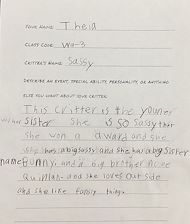 YOUR NAME: Theia
CLASS CODE: wq-3
CRITTER'S NAME: Sassy
DESCRIBE AN EVENT, SPECIAL ABILITY, PERSONALITY, OR ANYTHING
ELSE YOU WANT ABOUT YOUR CRITTER:
This critter is the younger
sister She is so sassy that
she won a award and she
has a big sassy and she has a big sister
name Bunny. and a big brother
and she loves out side
and she like fansy things.